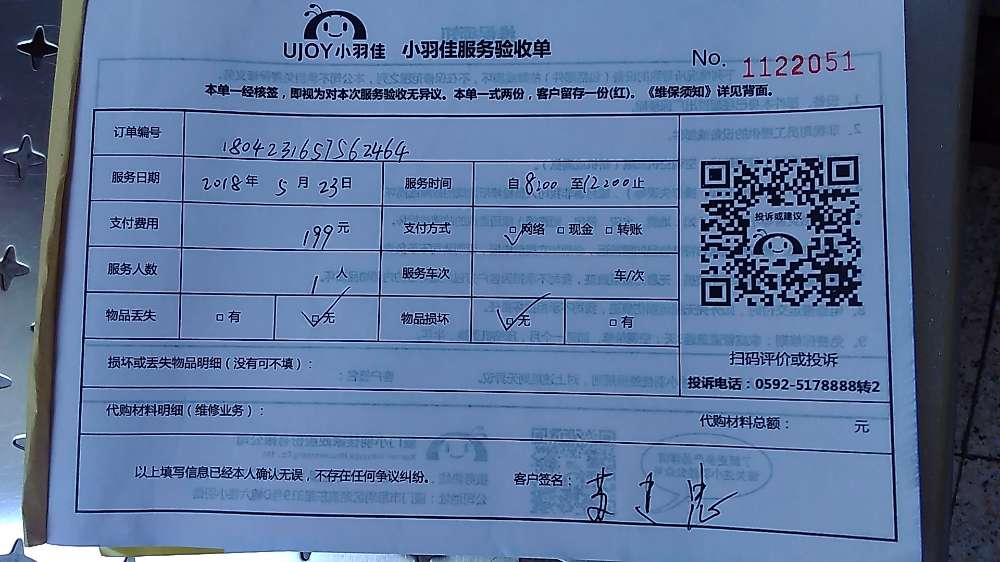 UJOY小羽佳 小羽佳服务验收单
No. 1122051
本单一经核签，即视为对本次服务验收无异议。本单一式两份，客户留存一份(红)。《维保须知》详见背面。
订单编号 1804231657562464
服务日期 2018年 5月 23日 服务时间 自8:00 至12:00止
支付费用 199元 支付方式 □网络 □现金 □转账
服务人数 1人 服务车次 车/次
物品丢失 □有 □无 物品损坏 □无 □有
投诉或建议
扫码评价或投诉
投诉电话：0592-5178888转2
损坏或丢失物品明细（没有可不填）：
代购材料明细（维修业务）： 代购材料总额： 元
以上填写信息已经本人确认无误，不存在任何争议纠纷。 客户签名：